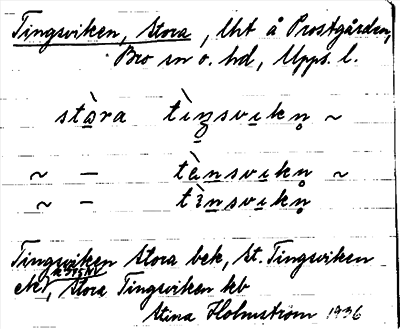 Tingsviken, Stora, lht å Prostgården,
Bro sn o. hd, Upps. l.
stὰra tìŋsvikn̥ ~
~ – tὰnsvikn̥ ~
~ – tìnsvikn̥
Tingsviken Stora bek, St. Tingsviken
Stora Tingsviken kb
Stina Holmström 1936